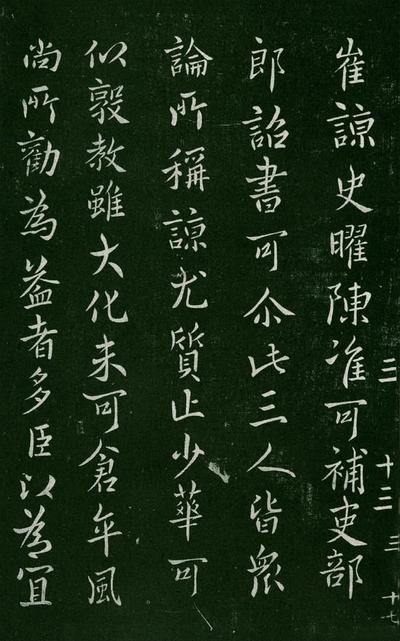 三 十三 三 十七
崔諒史曜陳准可補吏部
郎詔書可尒此三人皆眾
論所稱諒尤質止少華可
以敦教雖大化未可倉卒風
尚所勸為益者多臣以為宜